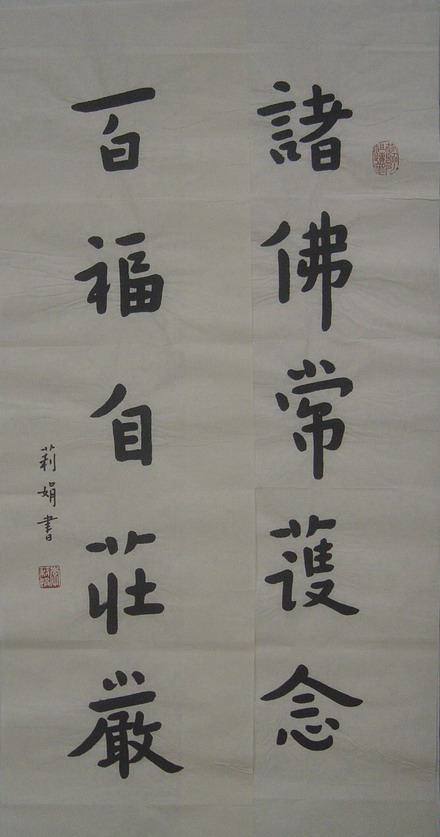 諸佛常護念
百福自莊厳
莉娟書